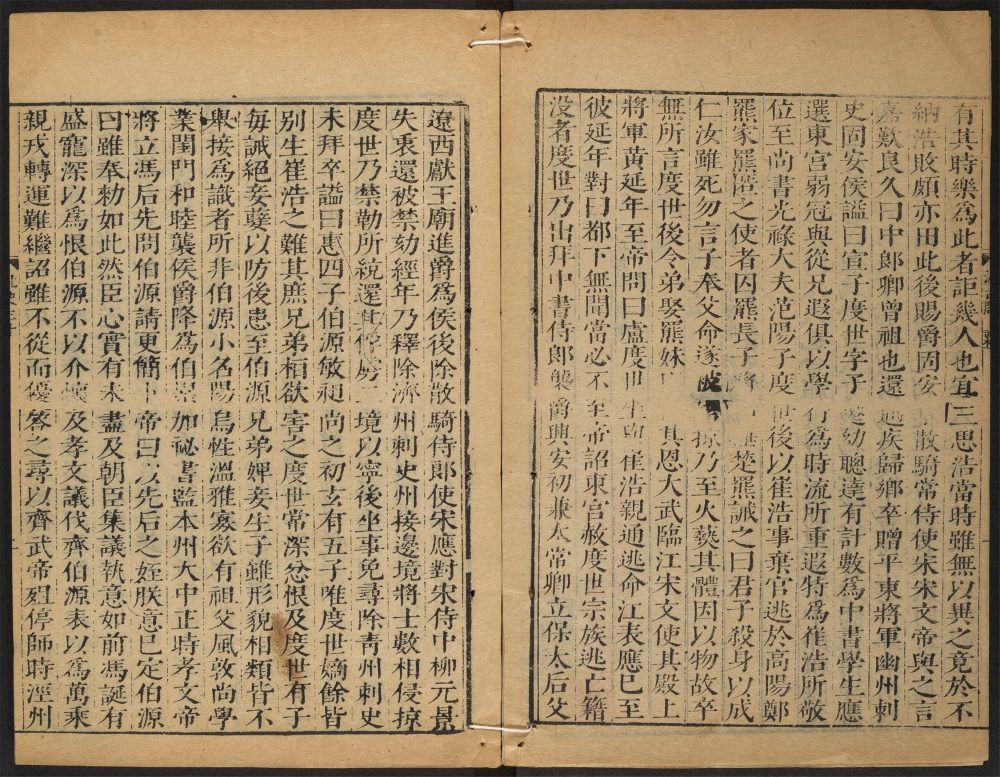 有其時樂為此者詎幾人也宜三思浩當時雖無以異之竟於不
納浩敗頗亦由此後賜爵固安子散騎常侍使宋宋文帝與之言
嘉歎良久曰中郎卿曾祖也還遇疾歸鄉卒贈平東將軍幽州刺
史固安侯諡曰宣子度世字子遷幼聰達有計數為中書學生應
選東宮弱冠與從兄遐俱以學行為時流所重遐特為崔浩所敬
位至尚書光祿大夫范陽子度世後以崔浩事棄官逃於高陽鄭
羆家羆匿之使者囚羆長子將 楚羆誡之曰君子殺身以成
仁汝雖死勿言子奉父命遂被 掠乃至火爇其體因以物故卒
無所言度世後令弟娶羆妹 其恩大武臨江宋文使其殿上
將軍黃延年至帝問曰盧度世坐與崔浩親通逃命江表應已至
彼延年對曰都下無聞當必不至帝詔東宮赦度世宗族逃亡籍
沒者度世乃出拜中書侍郎襲爵興安初兼太常卿立保太后父
遼西獻王廟進爵為侯後除散騎侍郎使宋應對宋侍中柳元景
失衷還被禁劾經年乃釋除濟州刺史州接邊境將士數相侵掠
度世乃禁勒所統還其俘虜二境以寧後坐事免尋除青州刺史
未拜卒諡曰惠四子伯源敏昶尚之初玄有五子唯度世嫡餘皆
別生崔浩之難其庶兄弟相欲害之度世常深忿恨及度世有子
每誡絕妾孽以防後患至伯源兄弟婢妾生子雖形貌相類皆不
舉接為識者所非伯源小名陽烏性溫雅寡欲有祖父風敦尚學
業閨門和睦襲侯爵降為伯累加祕書監本州大中正時孝文帝
將立馮后先問伯源請更簡卜帝曰以先后之姪朕意已定伯源
曰雖奉勑如此然臣心實有未盡及朝臣集議執意如前馮誕有
盛寵深以為恨伯源不以介懷及孝文議伐齊伯源表以為萬乘
親戎轉運難繼詔雖不從而優答之尋以齊武帝殂停師時涇州